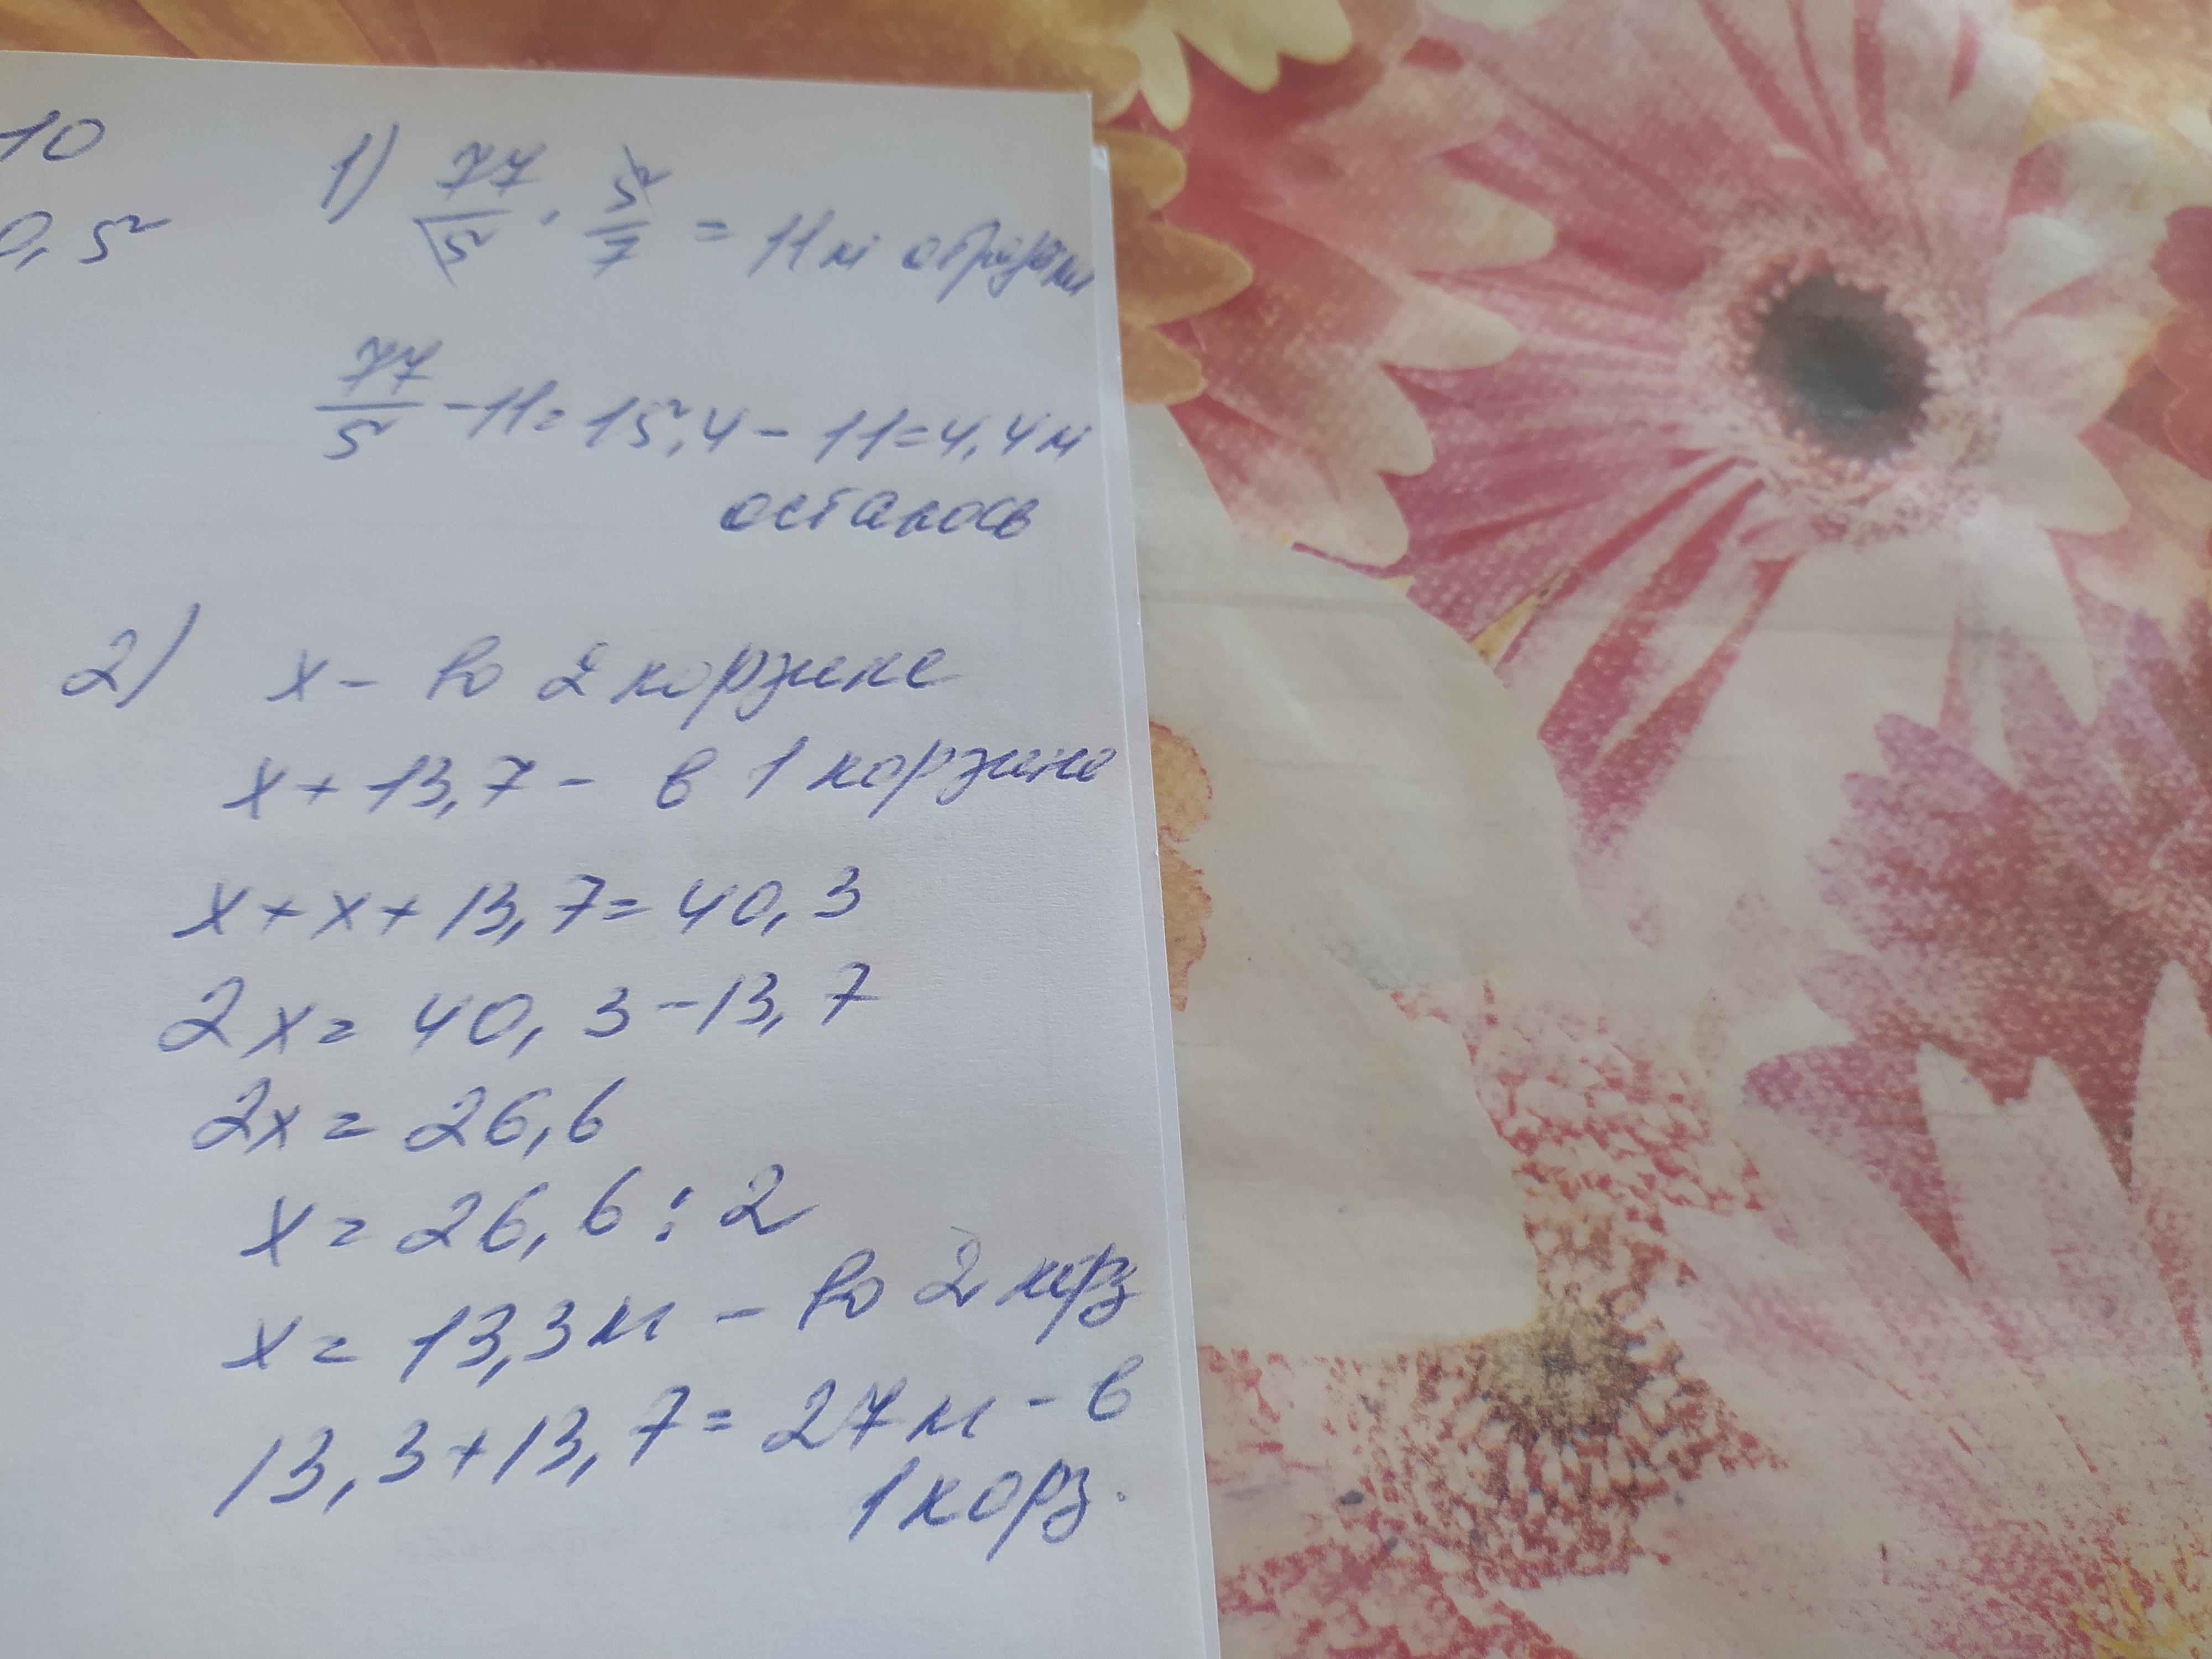 10
0,5
1) 77/5 · 5/7 = 11 м отрезали
77/5 - 11 = 15,4 - 11 = 4,4 м
осталось
2) x - во 2 корзине
x + 13,7 - в 1 корзине
x + x + 13,7 = 40,3
2x = 40,3 - 13,7
2x = 26,6
x = 26,6 : 2
x = 13,3 м - во 2 корз
13,3 + 13,7 = 27 м - в
1 корз.